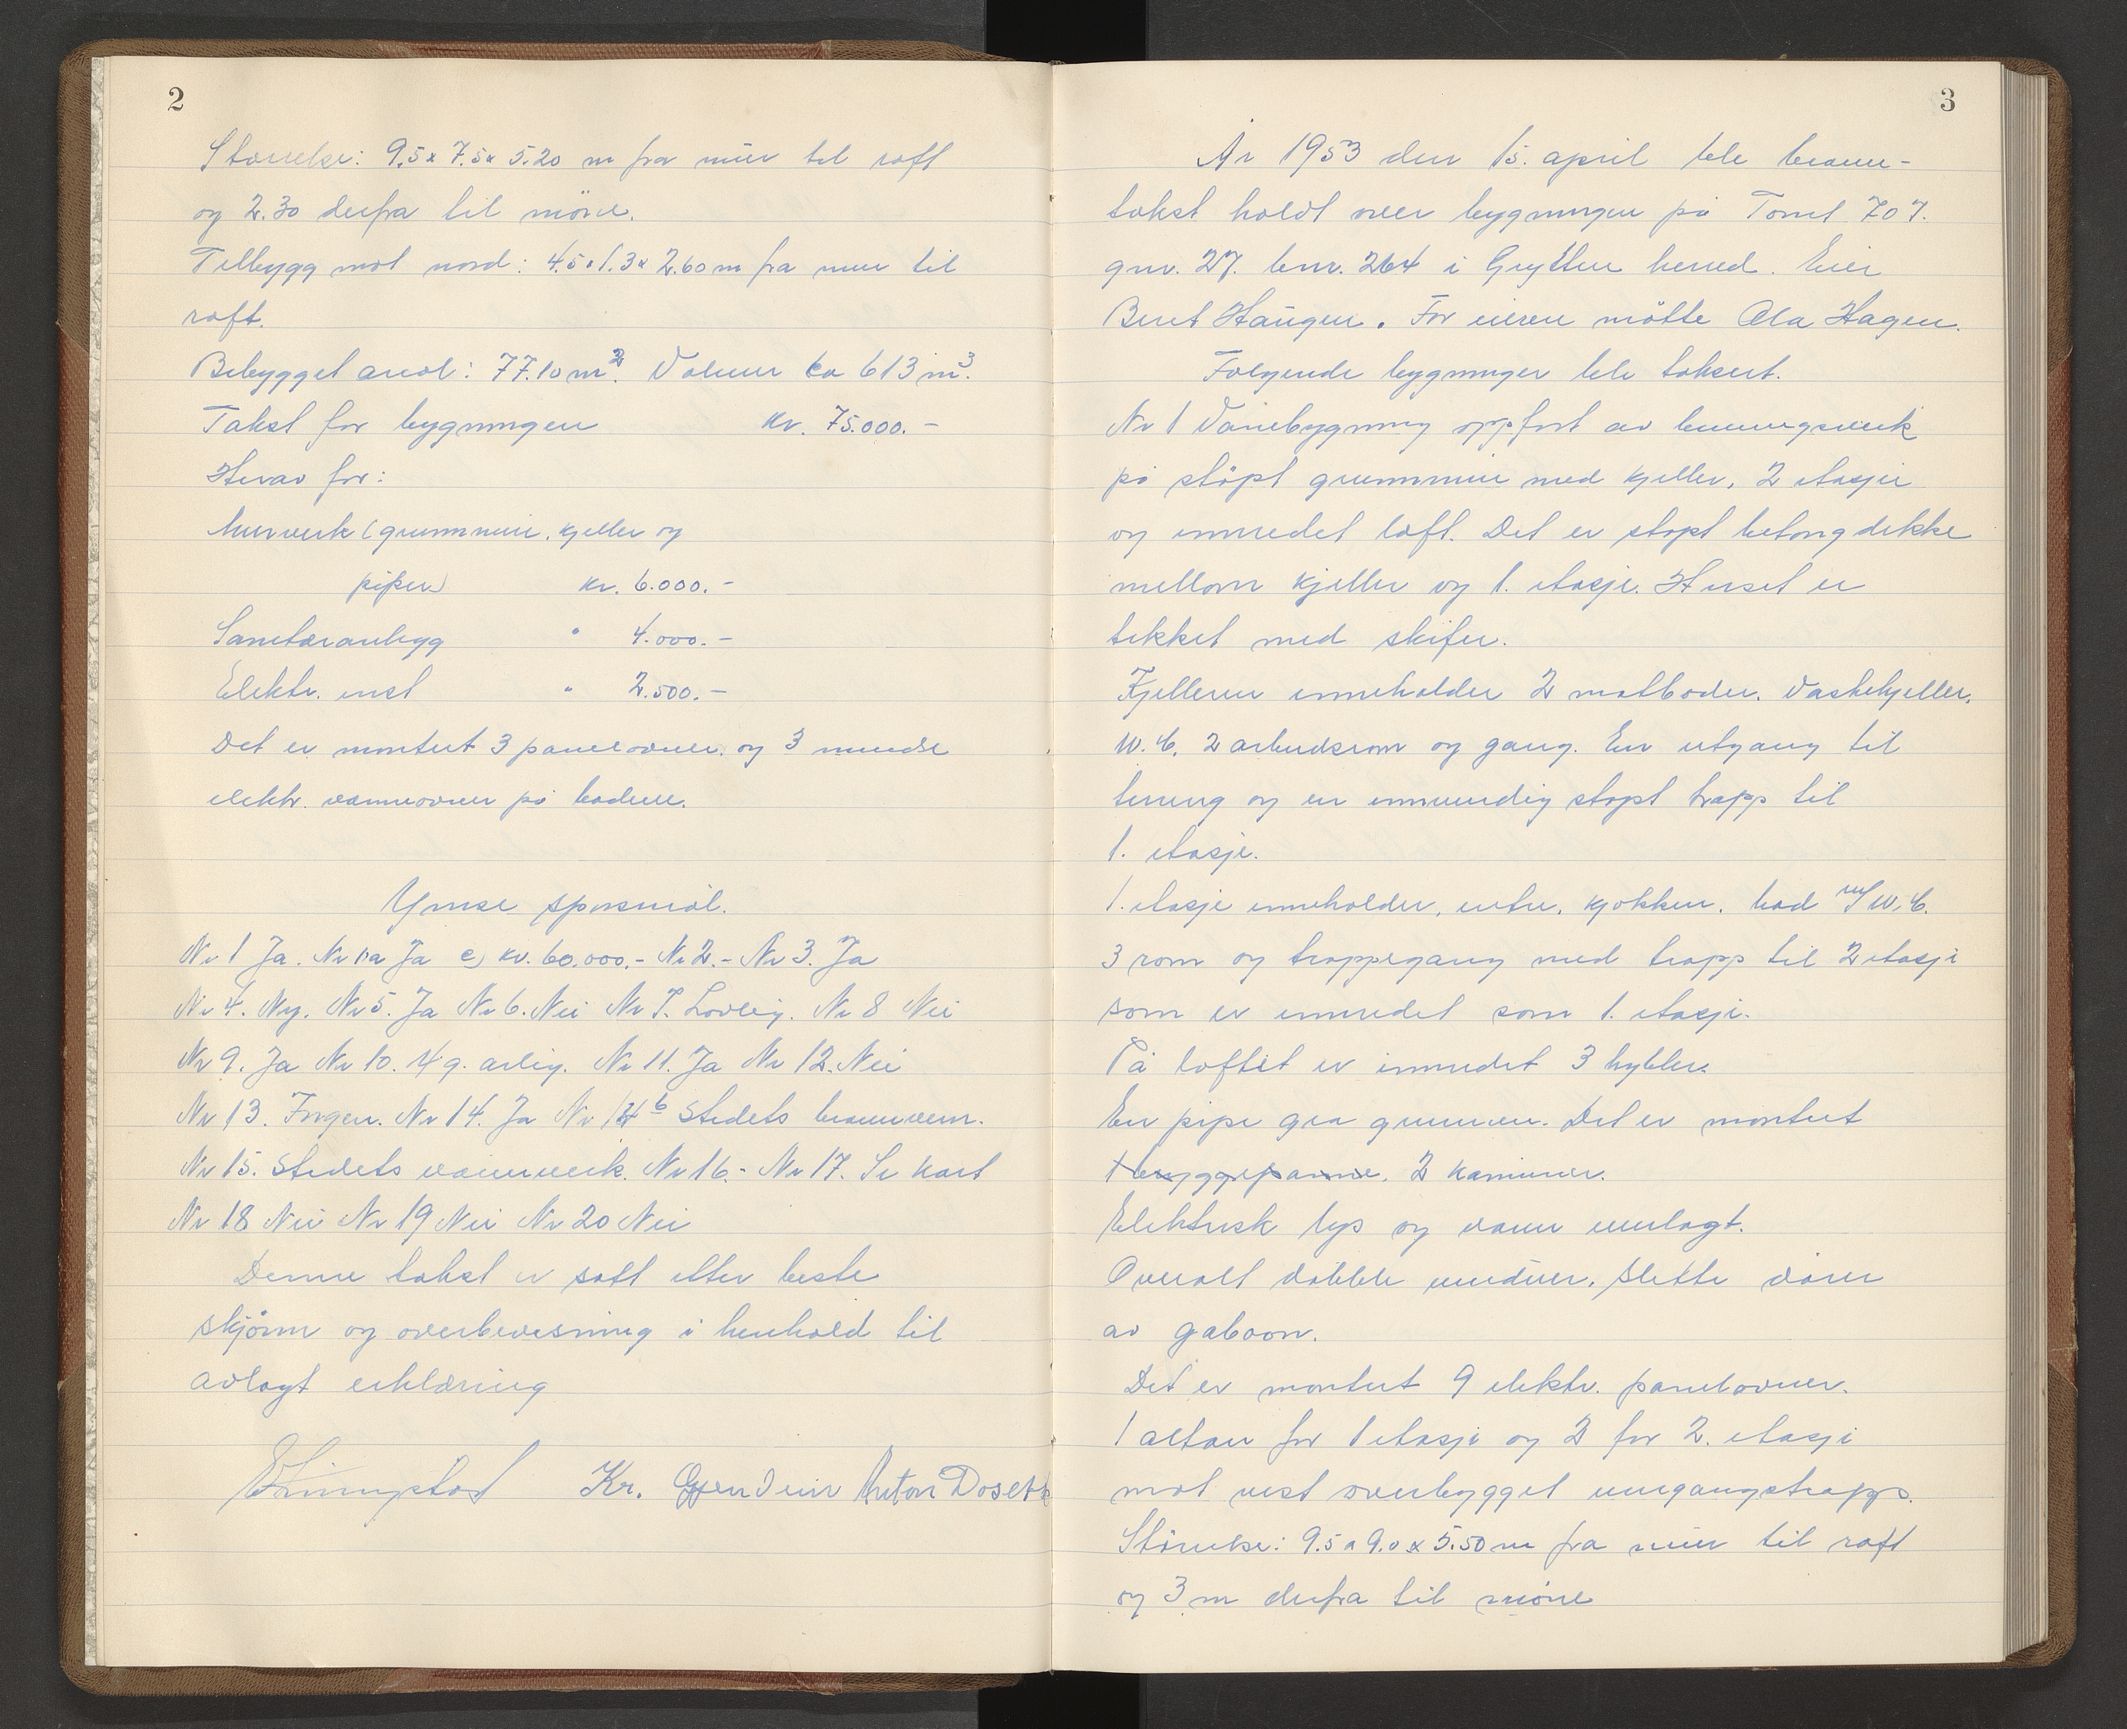 2
Størrelse: 9,5 x 7.5 x 5.20 m fra mur til raft
og 2.30 derfra til möne.
Tilbygg mot nord: 4.5 x 1.3 x 2.60 m fra mur til
raft.
Bebygget areal: 77.10 m². Volum ca 613 m³.
Takst for bygningen kr. 75.000.-
Herav for:
Murverk (grunnmur, kjeller og
piper) kr. 6.000.-
Sanitæranlegg " 4.000.-
Elektr. inst " 2.500.-
Det er montert 3 panelovner og 3 mindre
elektr. varmeovner på badene.
Ymse spørsmål.
Nr 1 Ja. Nr 1a Ja c) kr. 60.000.- Nr 2.- Nr 3. Ja
Nr 4. Ny. Nr 5. Ja Nr 6. Nei Nr 7. Lovlig. Nr 8 Nei
Nr 9. Ja Nr 10. 4 g. årlig. Nr 11. Ja Nr 12. Nei
Nr 13. Ingen. Nr 14. Ja Nr 14 b Stedets brannvern.
Nr 15. Stedets vannverk. Nr 16.- Nr 17. Se kart
Nr 18 Nei Nr 19 Nei Nr 20 Nei
Denne takst er satt etter beste
skjönn og overbevisning i henhold til
avlagt erklæring
Kr. Gjendem Anton Dosett
3
År 1953 den 15. april ble brann-
takst holdt over bygningen på Tomt 707.
gnr. 27. bnr. 264 i Grytten herred. Eier
Bert Haugen. For eieren mötte Ola Hagen.
Følgende bygninger ble taksert.
Nr 1 Vånebygning oppfört av binningsverk
på stöpt grunnmur med kjeller, 2 etasjer
og innredet loft. Det er støpt betongdekke
mellom kjeller og 1. etasje. Huset er
tekket med skifer.
Kjelleren inneholder 2 matboder. Vaskekjeller.
W.C. 2 arbeidsrom og gang. En utgang til
terreng og en innvendig støpt trapp til
1. etasje.
1. etasje inneholder, entre, kjøkken, bad m/ W.C.
3 rom og trappegang med trapp til 2 etasje
som er innredet som 1. etasje.
På loftet er innredet 3 hybler.
En pipe fra grunnen. Det er montert
1 bryggepanne, 2 kaminer.
Elektrisk lys og vann innlagt.
Overalt doble vinduer, slette dører
av gaboon.
Det er montert 9 elektr. panelovner.
1 altan for 1 etasje og 2 for 2. etasje
mot vest overbygget inngangstrapp.
Størrelse: 9.5 x 9.0 x 5.50 m fra mur til raft
og 3 m derfra til möne